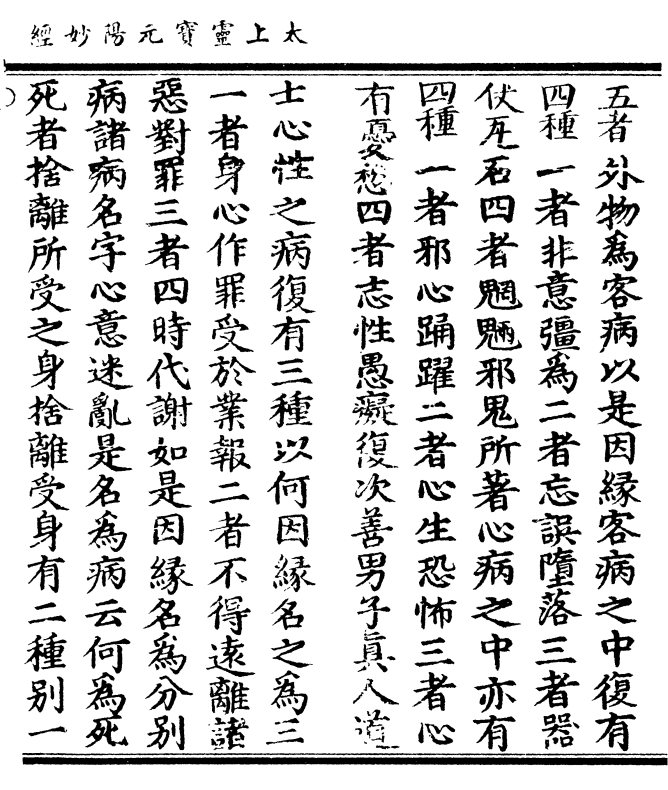 太上靈寶元陽妙經
五者外物為客病以是因緣客病之中復有
四種一者非意彊為二者忘誤墮落三者器
仗瓦石四者魍魎邪鬼所著心病之中亦有
四種一者邪心踊躍二者心生恐怖三者心
有憂愁四者志性愚癡復次善男子真人道
士心性之病復有三種以何因緣名之為三
一者身心作罪受於業報二者不得遠離諸
惡對罪三者四時代謝如是因緣名為分別
病諸病名字心意迷亂是名為病云何為死
死者捨離所受之身捨離受身有二種別一